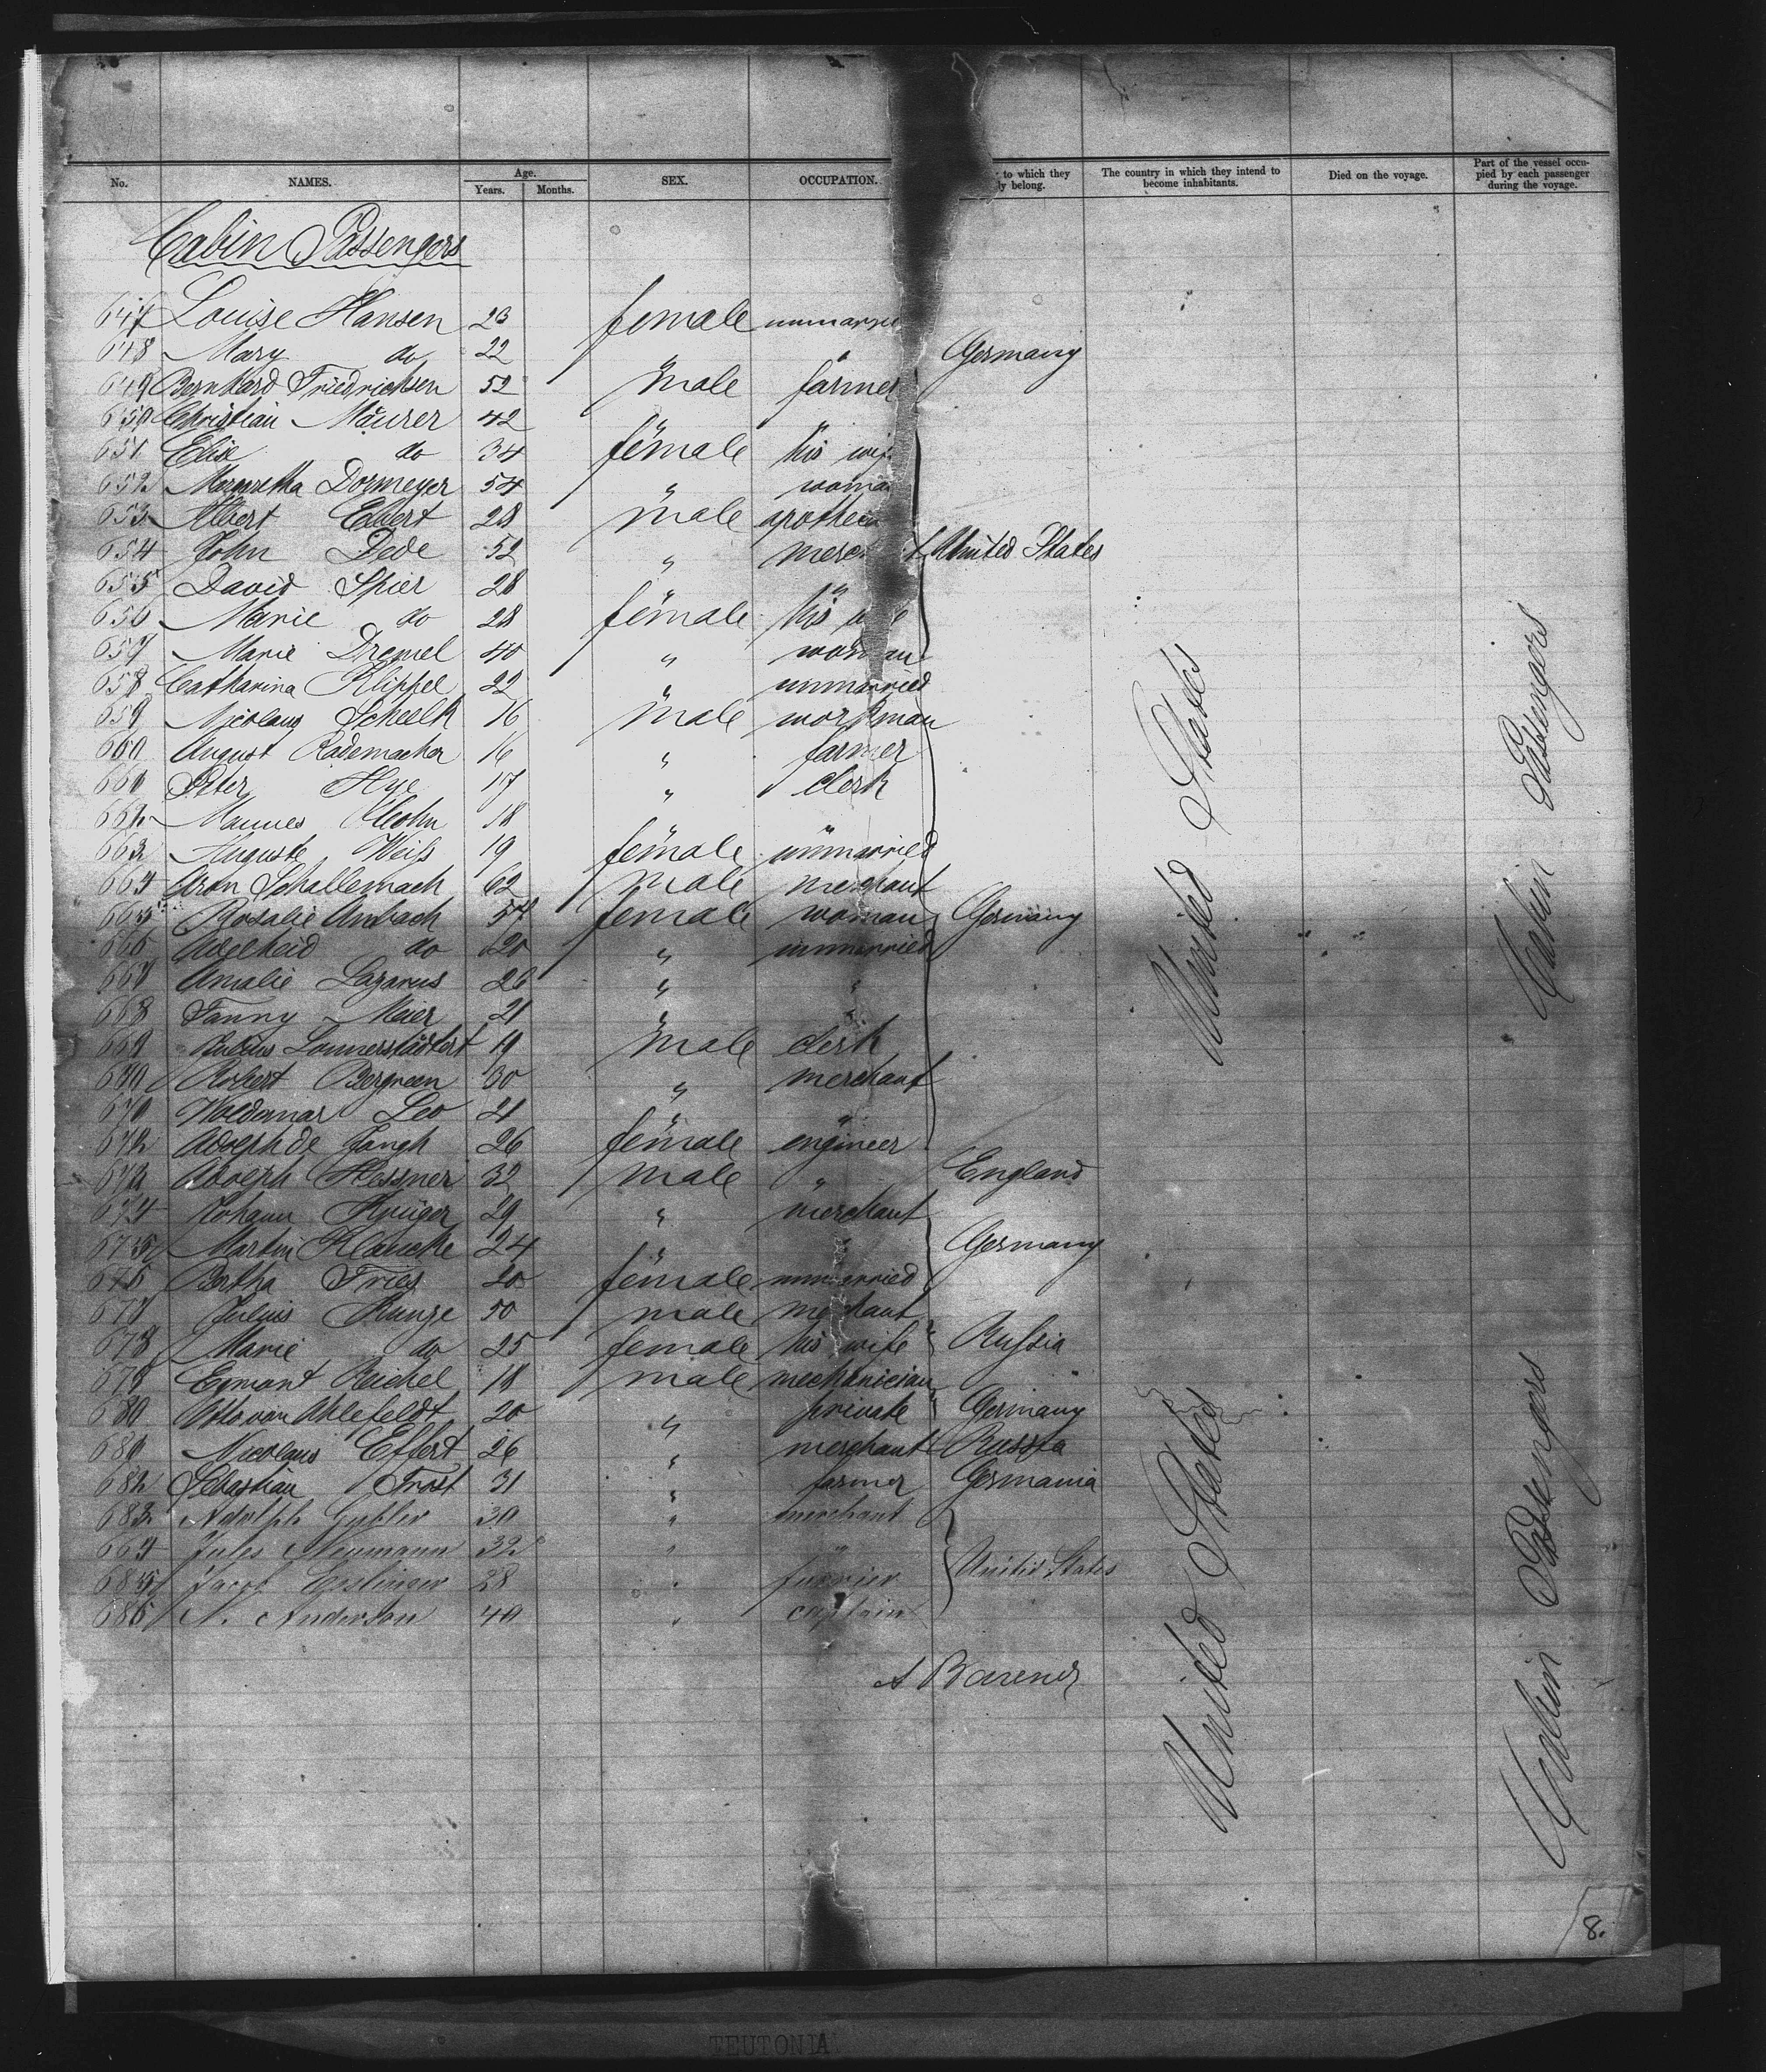 No. NAMES. Age. Years. Months. SEX. OCCUPATION. to which they ly belong. The country in which they intend to become inhabitants. Died on the voyage. Part of the vessel occupied by each passenger during the voyage.
Cabin Passengers
647 Louise Hansen 23 female unmarrie
648 Mary do 22 " " Germany
649 Bernhard Friedrichsen 52 male farmer
650 Christian Maurer 42 " "
651 Elise do 34 female his wife
652 Margaretha Dormeyer 54 " woman
653 Albert Ebert 28 male apothec
654 John Dede 52 " merch t United States
655 David Spier 28 " "
656 Marie do 28 female his w e
657 Marie Dremel 40 " woman
658 Catharina Klippel 22 " unmarried
659 Nicolaus Scheelk 16 male workman
660 August Rademacher 16 " farmer
661 Peter Hye 17 " clerk
662 Mannes 18 " "
663 Auguste Weiß 19 female unmarried
664 Aron Schallemach 62 male merchant
665 Rosalie Anbach 54 female woman Germany
666 Adelheid do 20 " unmarried
667 Amalie Lazarus 26 " "
668 Fanny Meier 21 " "
669 Lonnerstädter 19 male clerk
670 Robert Bergreen 30 " merchant
671 Woldemar Leo 21 " "
672 Adolph de Jongh 26 female engineer
673 Adolph Hessner 32 male " England
674 Johann Krüger 29 " merchant
675 Martin Klaucke 24 " " Germany
676 Bertha Fries 20 female unmarried
677 Julius Kunze 50 male merchant
678 Marie do 25 female his wife Rußia
679 Egmont Reichel 18 male mechanician
680 Otto von Ahlefeldt 20 " private Germany
681 Nicolaus Effert 26 " merchant Russia
682 Sebastian Frost 31 " farmer Germania
683 Adolph 30 " merchant
664 Jules Neumann 32 " "
685 Jacob Esslinger 28 " furrier United States
686 N. Anderson 40 " captain
United States
Cabin Passengers
United States
Cabin Passengers
A Barends
8.
TEUTONIA